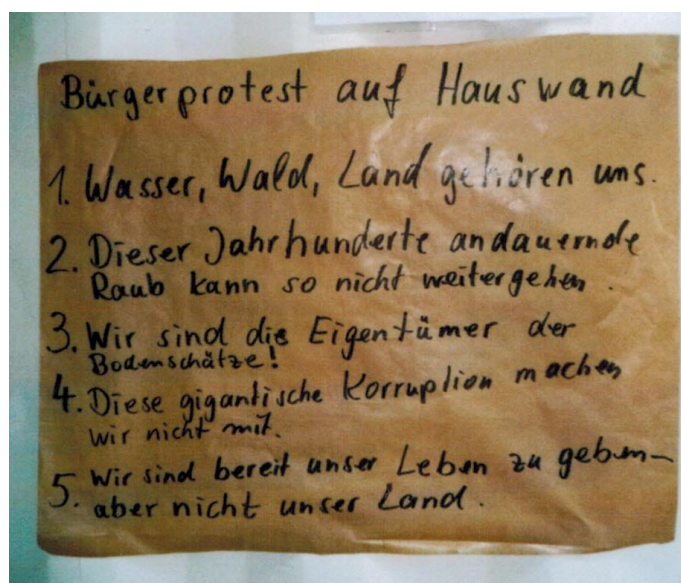 Bürgerprotest auf Hauswand
1. Wasser, Wald, Land gehören uns.
2. Dieser Jahrhunderte andauernde
Raub kann so nicht weitergehen.
3. Wir sind die Eigentümer der
Bodenschätze!
4. Diese gigantische Korruption machen
wir nicht mit.
5. Wir sind bereit unser Leben zu geben –
aber nicht unser Land.